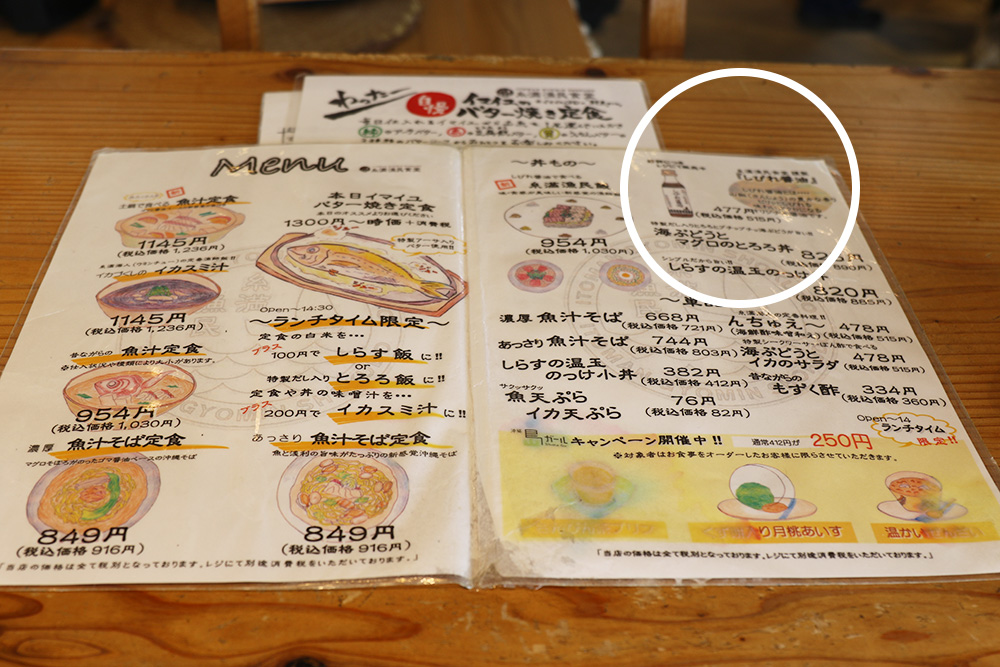 わったー
自慢
イマイユの
バター焼き定食
Menu
糸満漁民食堂
魚汁定食
1145円
(税込価格1,236円)
イカづくしの イカスミ汁
1145円
(税込価格1,236円)
昔ながらの 魚汁定食
954円
(税込価格1,030円)
濃厚 魚汁そば定食
マグロそぼろがのったゴマ醤油ベースの沖縄そば
849円
(税込価格 916円)
本日イマイユ
バター焼き定食
本日のオススメよりお選びください
1300円〜時価+消費税
特製アーサ入り
バター使用!!
open〜14:30
〜ランチタイム限定〜
定食の白米を・・・
プラス 100円で しらす飯 に!!
or
特製だし入り とろろ飯 に!!
定食や丼の味噌汁を・・・
プラス 200円で イカスミ汁 に!!
あっさり 魚汁そば定食
魚と浅利の旨味がたっぷりの新感覚沖縄そば
849円
(税込価格 916円)
「当店の価格は全て税別となっております。レジにて別途消費税をいただいております。」
〜丼もの〜
しびれ醤油で食べる
糸満漁民
954円
(税込価格1,030円)
「しびれ醤油」
477円
(税込価格 515円)
海ぶどうと
マグロのとろろ丼
しらすの温玉のっけ
820円
(税込価格 885円)
濃厚 魚汁そば 668円
(税込価格 721円)
あっさり 魚汁そば 744円
(税込価格 803円)
しらすの温玉
のっけ小丼 382円
(税込価格 412円)
サクッサクッ
魚天ぷら
イカ天ぷら 76円
(税込価格 82円)
んちゅえ〜 478円
(海鮮酢味噌和え) (税込価格 515円)
海ぶどうと
イカのサラダ 478円
(税込価格 515円)
昔ながらの
もずく酢 334円
(税込価格 360円)
open〜14
ランチタイム
限定!!
キャンペーン開催中!! 通常412円が 250円
※対象者はお食事をオーダーしたお客様に限らさせていただきます。
月桃あいす
温かい
「当店の価格は全て税別となっております。レジにて別途消費税をいただいております。」